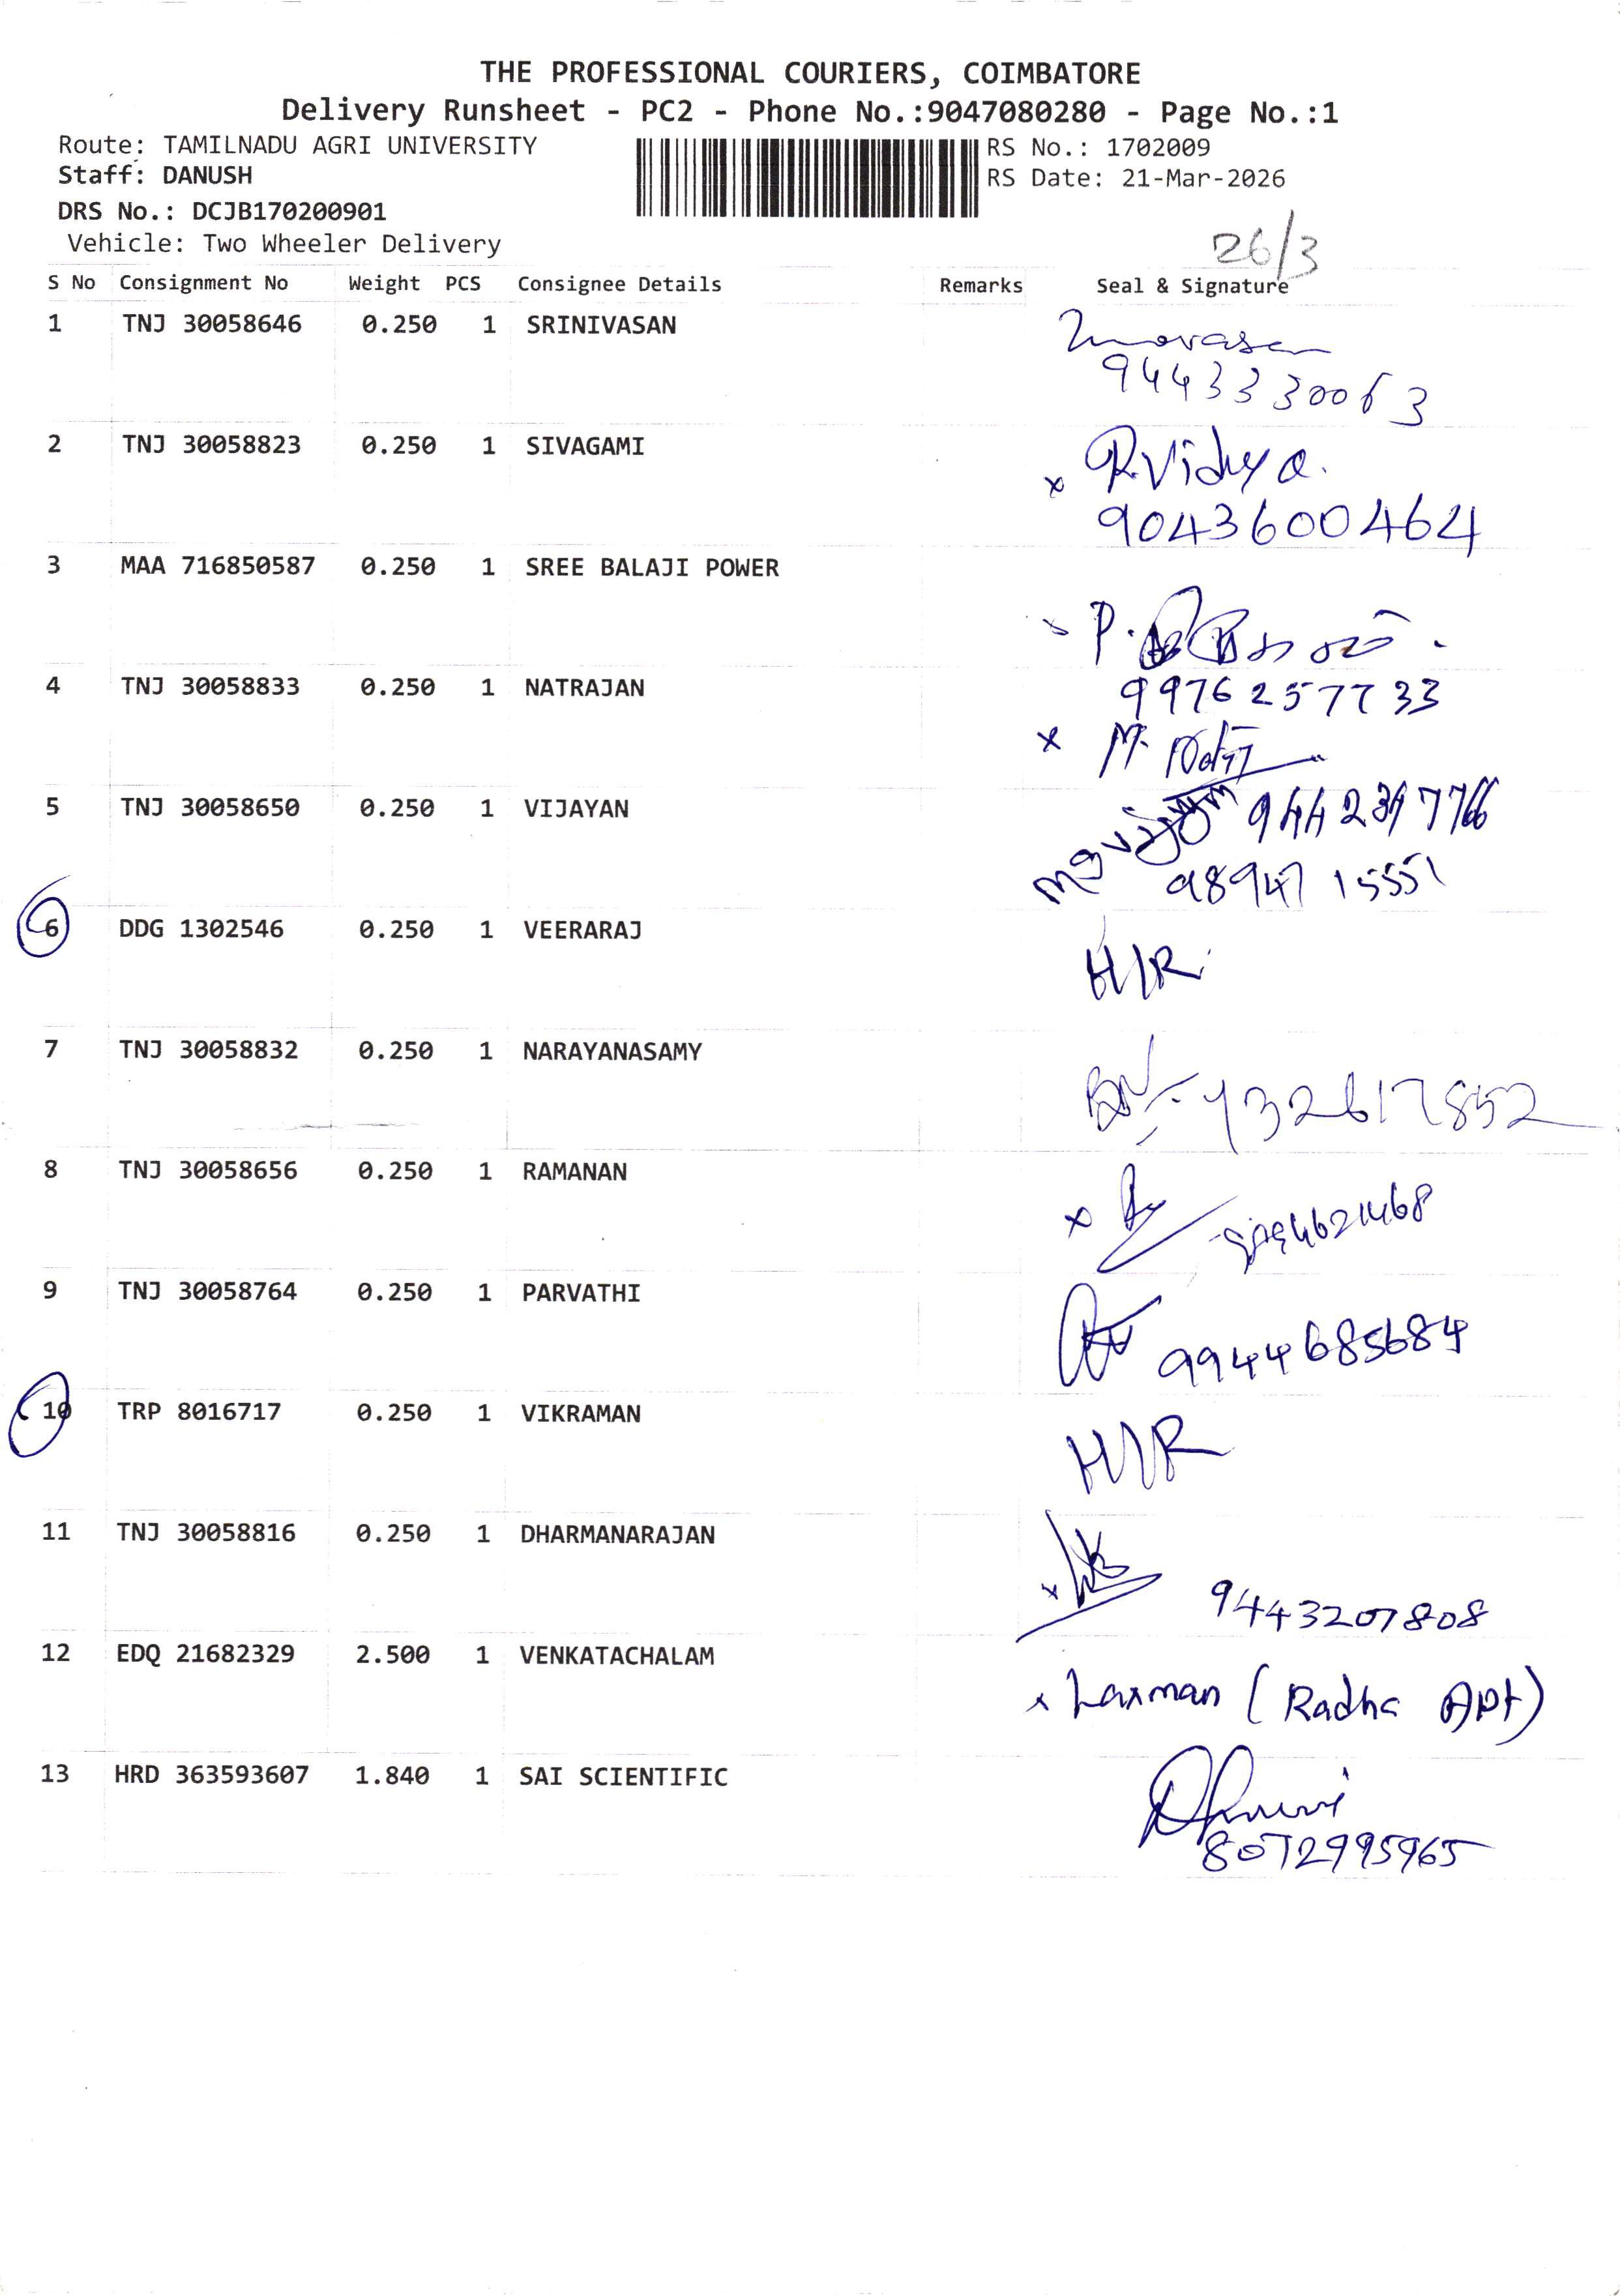 THE PROFESSIONAL COURIERS, COIMBATORE
Delivery Runsheet - PC2 - Phone No.:9047080280 - Page No.:1
Route: TAMILNADU AGRI UNIVERSITY
RS No.: 1702009
Staff: DANUSH
RS Date: 21-Mar-2026
DRS No.: DCJB170200901
Vehicle: Two Wheeler Delivery
26/3
S No Consignment No Weight PCS Consignee Details Remarks Seal & Signature
1 TNJ 30058646 0.250 1 SRINIVASAN
9443330063
2 TNJ 30058823 0.250 1 SIVAGAMI R.Vidhya.
9043600464
3 MAA 716850587 0.250 1 SREE BALAJI POWER
P.
4 TNJ 30058833 0.250 1 NATRAJAN 9976257733
M.
5 TNJ 30058650 0.250 1 VIJAYAN
98947 15551
6 DDG 1302546 0.250 1 VEERARAJ H/R
7 TNJ 30058832 0.250 1 NARAYANASAMY
8 TNJ 30058656 0.250 1 RAMANAN
9 TNJ 30058764 0.250 1 PARVATHI 9944685684
10 TRP 8016717 0.250 1 VIKRAMAN H/R
11 TNJ 30058816 0.250 1 DHARMANARAJAN
9443207808
12 EDQ 21682329 2.500 1 VENKATACHALAM
x Laxman (Radha Apt)
13 HRD 363593607 1.840 1 SAI SCIENTIFIC
8072995965